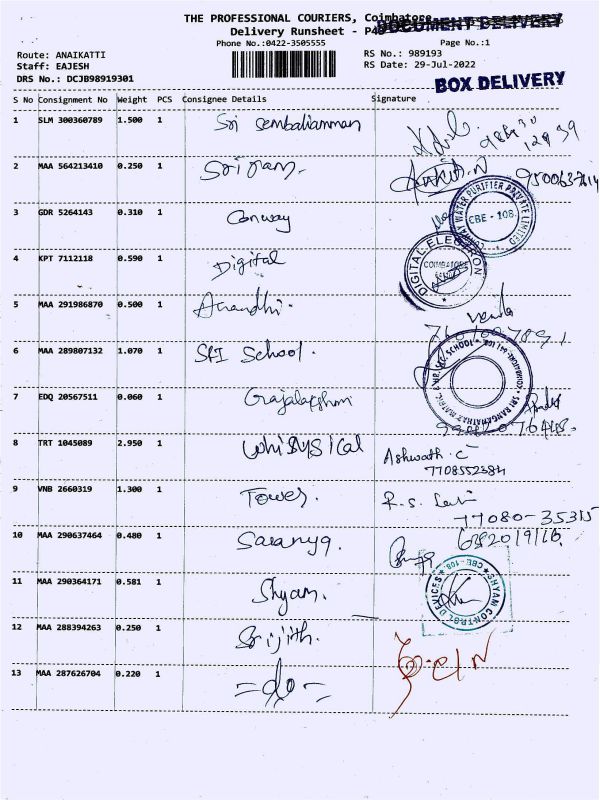 THE PROFESSIONAL COURIERS, Coimbatore
DOCUMENT DELIVERY
Delivery Runsheet - P49
Phone No.:0422-3505555
Page No.:1
Route: ANAIKATTI
RS No.: 989193
Staff: EAJESH
RS Date: 29-Jul-2022
DRS No.: DCJB98919301
BOX DELIVERY
S No Consignment No Weight PCS Consignee Details Signature
1 SLM 300360789 1.500 1 Sri Sembaliamman
2 MAA 564213410 0.250 1 Sriram.
3 GDR 5264143 0.310 1 Conway
WATER PURIFIER PRIVATE LIMITED
CBE - 108.
4 KPT 7112118 0.590 1 Digital
DIGITAL ELECTRON
COIMBATORE
5 MAA 291986870 0.500 1 Anandhi.
6 MAA 289807132 1.070 1 SRI School.
7 EDQ 20567511 0.060 1 Gajalakshmi
8 TRT 1045089 2.950 1 Whimsical Ashwath C
7708552384
9 VNB 2660319 1.300 1 Tower. R.S.
77080-35315
10 MAA 290637464 0.480 1 Saranya.
11 MAA 290364171 0.581 1 Shyam.
SHYAM CONTROL DEVICES
CBE-108
12 MAA 288394263 0.250 1 Srijith.
13 MAA 287626704 0.220 1 -do-